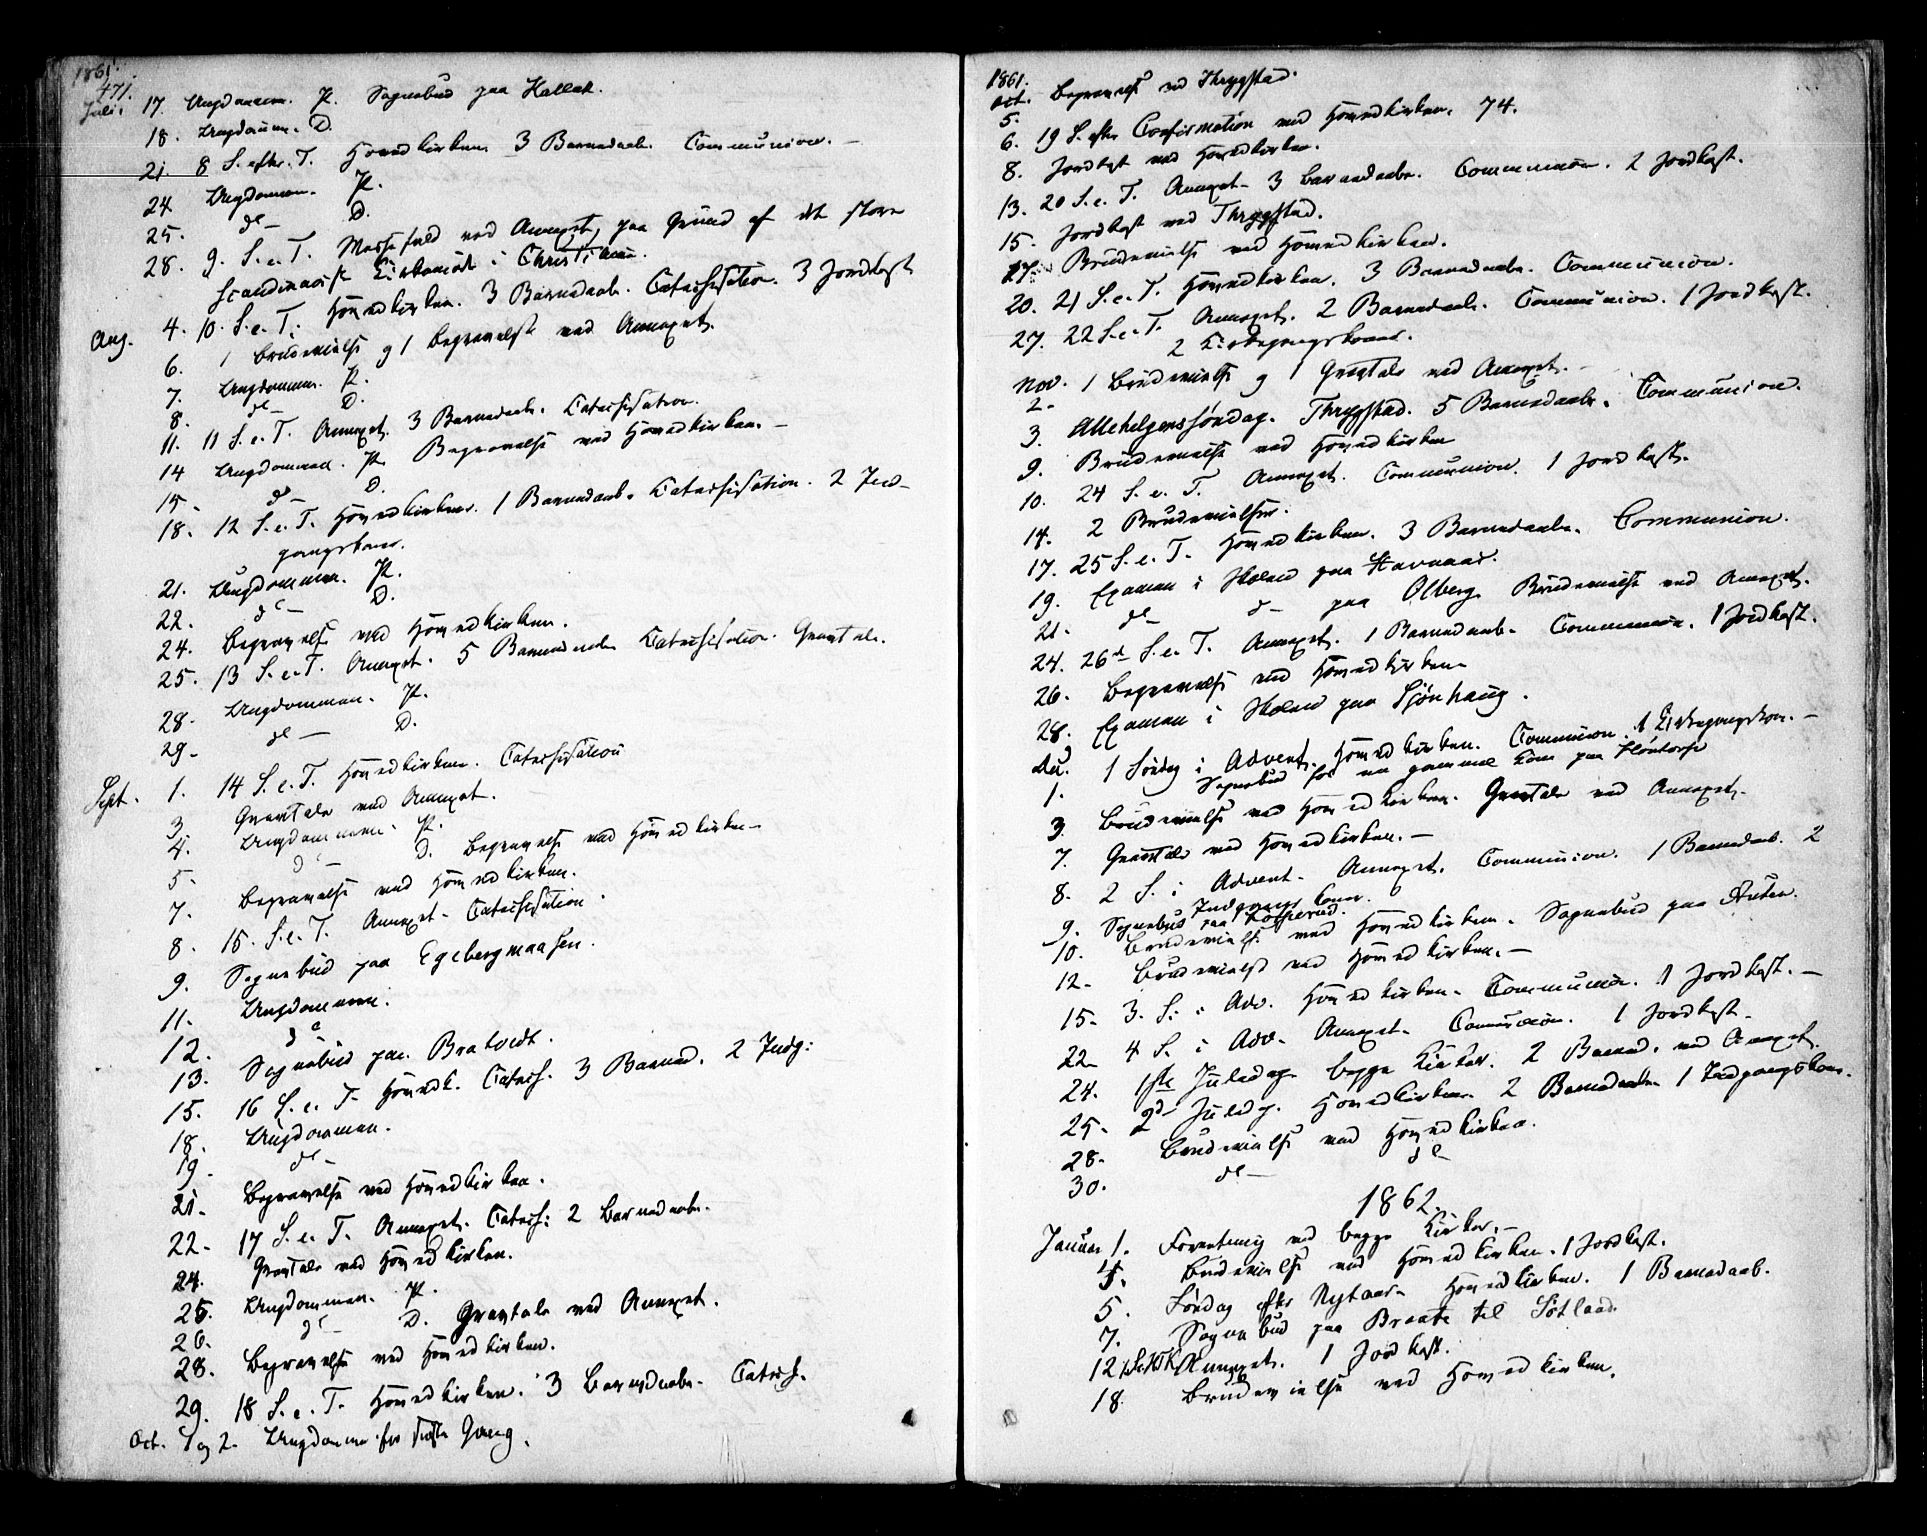 1861.
471.
Juli. 17. Ungdommen. P. Sognebud paa Kallak.
18. Ungdomm. D.
21. 8 S. efter T. Hovedkirken 3 Barnedaab. Communion. —
24 Ungdommen. P.
25. do — D.
28. 9. S. e. T. Messefald ved Annexet, paa Grund af det store
scandinaviske Kirkemøde i Christiania.
Aug. 4. 10. S. e. T. Hovedkirken. 3 Barnedaab. Catechisation. 3 Jordkast
6. 1 Brudevielse og 1 Begravelse ved Annexet.
7. Ungdommen. P.
8. do — D.
11. 11 S. e. T. Annexet. 3 Barnedaab. Catechisation.
14 Ungdommen. P. Begravelse ved Hovedkirken. —
15. do — D.
18. 12 S. e. T. Hovedkirken. 1 Barnedaab. Catechisation. 2 Ind-
gangskoner.
21. Ungdommen. P.
22. do — D.
24. Begravelse ved Hovedkirken.
25. 13 S. e. T. Annexet. 5 Barnedaab Catechisation. Gravtale.
28. Ungdommen. P.
29. do — D.
Sept. 1. 14 S. e. T. Hovedkirken. Catechisation
3 Gravtale ved Annexet.
4. Ungdommen. P.
5. do — D. Begravelse ved Hovedkirken
7. Begravelse ved Hovedkirken.
8. 15. S. e. T. Annexet. Catechisation.
9. Sognebud paa Egebergmaasen.
11. Ungdommen.
12. do
13. Sognebud paa Bratvedt.
15. 16 S. e. T. Hovedk. Catech. 3 Barned. 2 Indg:
18. Ungdommen.
19. do —
21. Begravelse ved Hovedkirken.
22. 17 S. e. T. Annexet. Catech: 2 Barnedaab.
24. Gravtale ved Hovedkirken.
25. Ungdommen. P.
26. do — D. Gravtale ved Annexet.
28. Begravelse ved Hovedkirken.
29. 18 S. e. T. Hovedkirken. 3 Barnedaab. Catech.
Oct. 1 og 2. Ungdommen for sidste Gang.
1861.
Oct. Begravelse ved Thrygstad.
5.
6. 19 S. efter Confirmation ved Hovedkirken. 74.
8. Jordkast ved Hovedkirken.
13. 20 S. e. T. Annexet. 3 Barnedaab. Communion. 2 Jordkast.
15. Jordkast ved Thrygstad.
17. Brudevielse ved Hovedkirken.
20. 21 S. e. T. Hovedkirken. 3 Barnedaab. Communion.
27. 22 S. e. T. Annexet. 2 Barnedaab. Communion. 1 Jordkast.
2 Kirkegangskoner.
Nov. 1 Brudevielse og 1 Gravtale ved Annexet. —
2.
3. Allehelgenssøndag. Thrygstad. 5 Barnedaab. Communion.
9. Brudevielse ved Hovedkirken
10. 24 S. e. T. Annexet. Communion. 1 Jordkast.
14. 2 Brudevielser.
17. 25 S. e. T. Hovedkirken. 3 Barnedaab. Communion.
19. Examen i Skolen paa Havnaas.
21. do — do — paa Olberg. Brudevielse ved Annexet.
24. 26de S. e. T. Annexet. 1 Barnedaab. Communion. 1 Jordkast.
26. Begravelse ved Hovedkirken
28. Examen i Skolen paa Sjønhaug.
Dec. 1 Søndag i Advent. Hovedkirken. Communion. 1 Kirkegangskon. —
1. Sognebud for en gammel Kone paa
3. Brudevielse ved Hovedkirken. Gravtale ved Annexet.
7. Gravtale ved Hovedkirken. —
8. 2 S. i Advent. Annexet. Communion. 1 Barnedaab. 2
Indgangskoner.
9. Sognebud paa
10. Brudevielse ved Hovedkirken. Sognebud paa
12. Brudevielse ved Hovedkirken. —
15. 3. S. i Adv. Hovedkirken. Communion. 1 Jordkast. —
22 4 S. i Adv. Annexet. Communion. 1 Jordkast.
24. 1ste Juledag. begge Kirker. 2 Barned. ved Annexet.
25. 2d Juledg. Hovedkirken. 2 Barnedaab. 1 Indgangskone.
28. Brudevielse ved Hovedkirken.
30. do — do —
1862.
Januar 1. Forretning ved begge Kirker. —
Brudevielse ved Hovedkirken. 1 Jordkast.
5. Søndag efter Nytaar. Hovedkirken. 1 Barnedaab.
7. Sognebud paa Braate til Søtland.
12 Annexet. 1 Jordkast.
18. Brudevielse ved Hovedkirken.